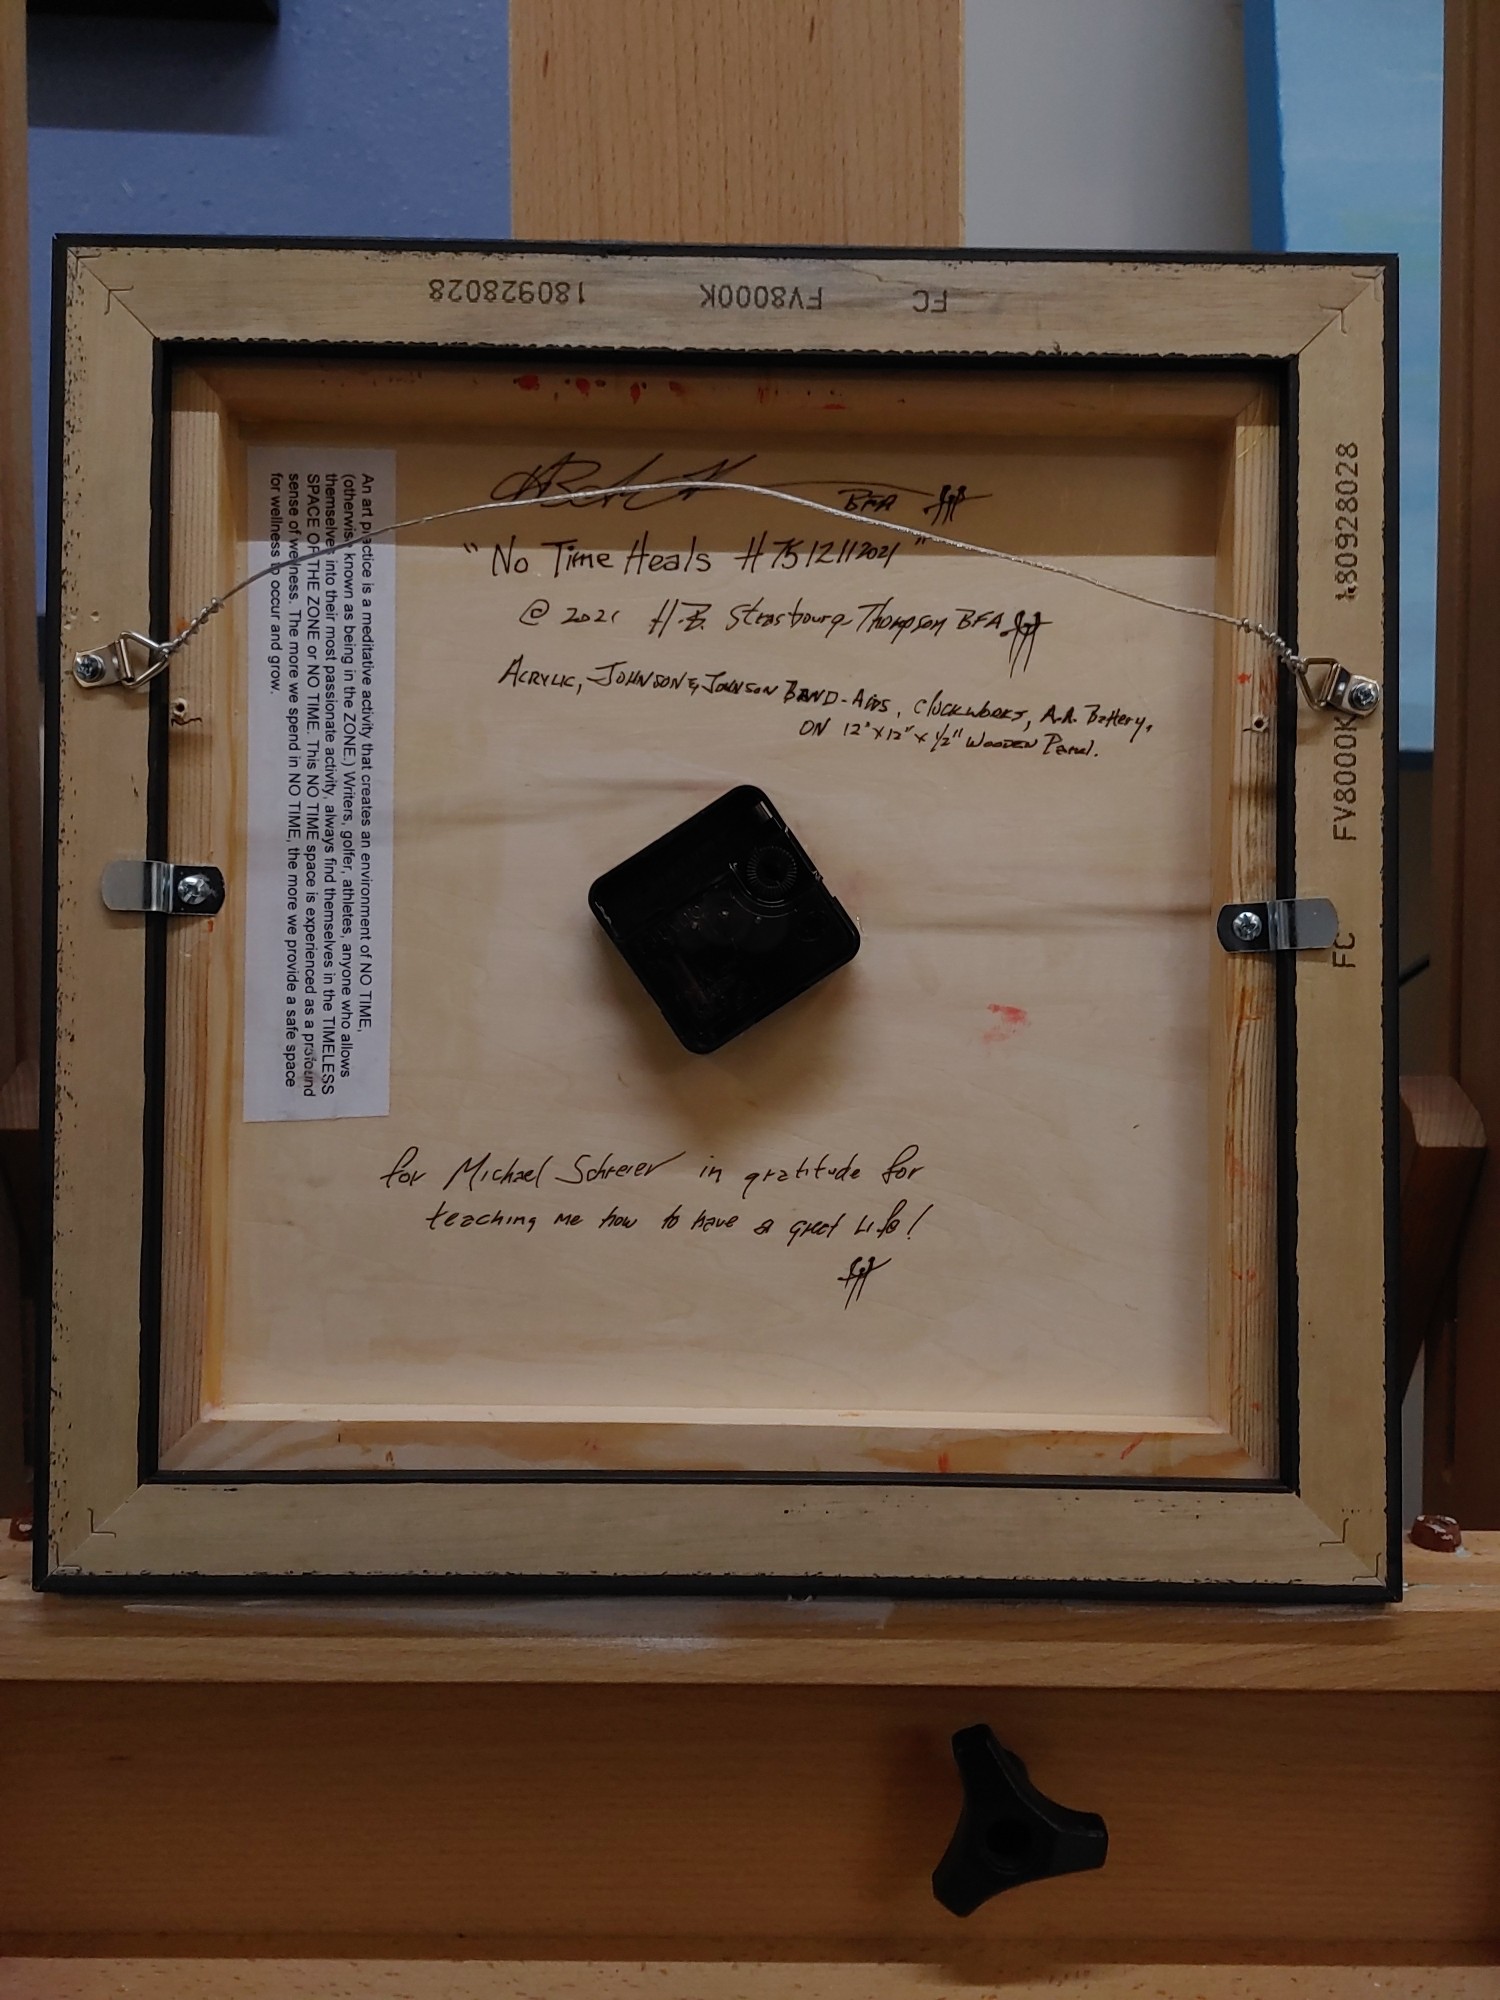 180928028 FV8000K FC
BFA
"No Time Heals #75 12112021"
@ 2021 H.B. Strasbourg-Thompson BFA
Acrylic, Johnson & Johnson Band-Aids, clockworks, A.A. Battery,
on 12" x 12" x 1/2" Wooden Panel.
An art practice is a meditative activity that creates an environment of NO TIME,
(otherwise known as being in the ZONE.) Writers, golfer, athletes, anyone who allows
themselves into their most passionate activity, always find themselves in the TIMELESS
SPACE OF THE ZONE or NO TIME. This NO TIME space is experienced as a profound
sense of wellness. The more we spend in NO TIME, the more we provide a safe space
for wellness to occur and grow.
for Michael Schreier in gratitude for
teaching me how to have a great Life!
180928028 FV8000K FC